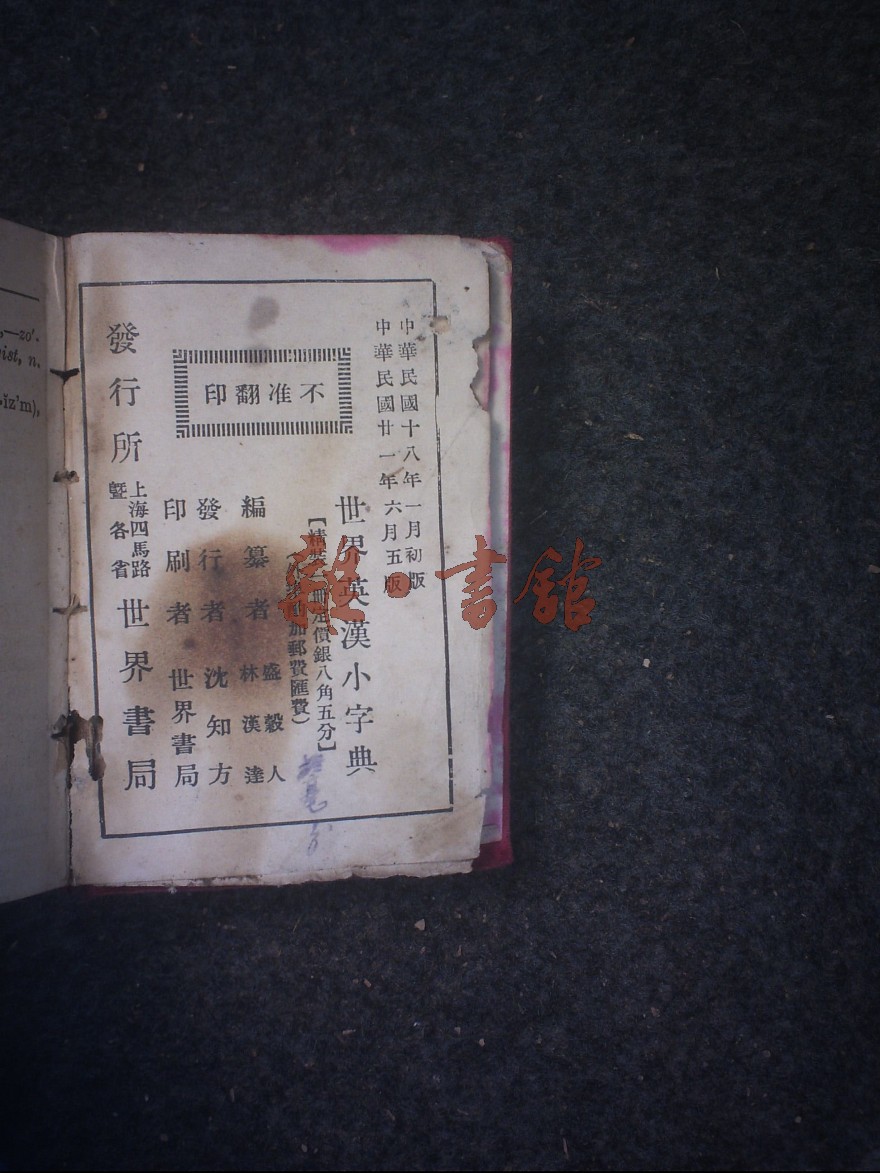 中華民國十八年一月初版
中華民國廿一年六月五版
世界英漢小字典
【精裝一冊定價銀八角五分】
加郵費匯費）
不准翻印
編纂者 盛穀人 林漢達
發行者 沈知方
印刷者 世界書局
發行所 上海四馬路暨各省 世界書局
—zo'.
ist, n.
iz'm),
雜·書館